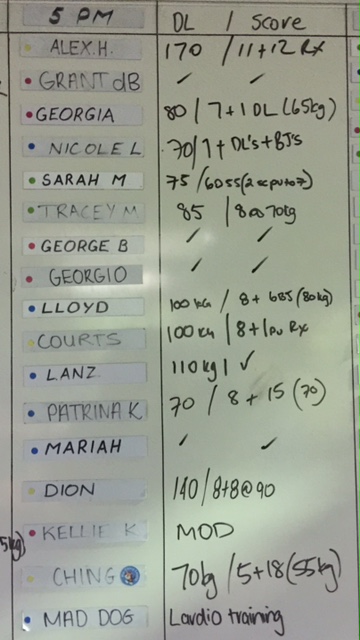 5 PM DL / Score
ALEX.H. 170 / 11+12 Rx
GRANT dB / /
GEORGIA 80 / 7+1 DL (65kg)
NICOLE L 70/7+ DL's + BJ's
SARAH M 75 /
TRACEY M 85 / 8 70kg
GEORGE B / /
GEORGIO / /
LLOYD 100 KG / 8+ (80kg)
COURTS 100 KG / 8+1 Rx
LANZ 110 kg / ✓
PATRINA K 70 / 8 + 15 (70)
MARIAH / /
DION 140/8+8@90
5kg)
KELLIE K MOD
CHING 70kg / 5+18 (55kg)
MAD DOG Cardio training